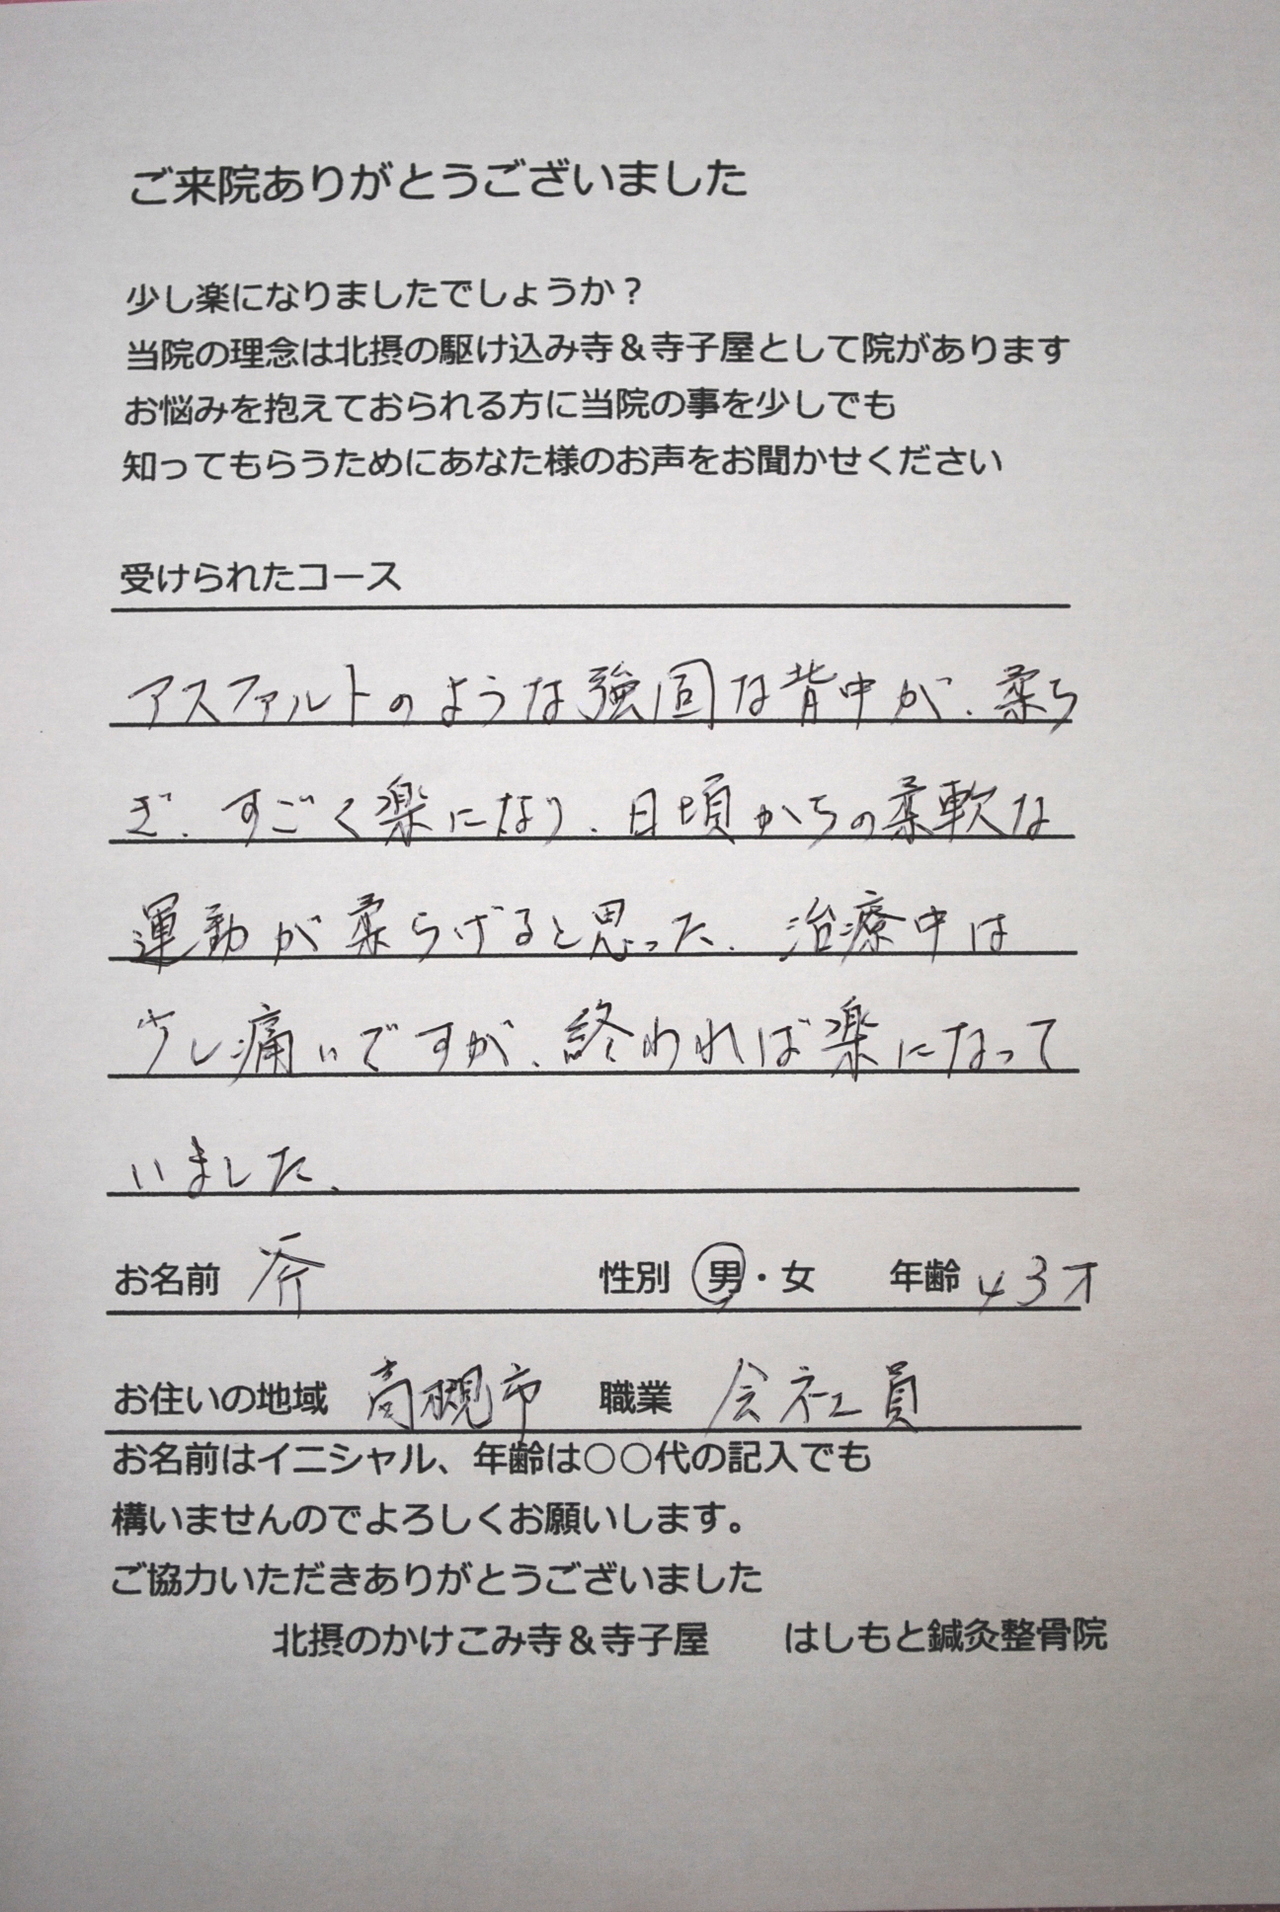 ご来院ありがとうございました
少し楽になりましたでしょうか？
当院の理念は北摂の駆け込み寺＆寺子屋として院があります
お悩みを抱えておられる方に当院の事を少しでも
知ってもらうためにあなた様のお声をお聞かせください
受けられたコース
アスファルトのような強固な背中が、柔ら
ぎ、すごく楽になり、日頃からの柔軟な
運動が柔らげると思った。治療中は
少し痛いですが、終われば楽になって
いました。
お名前 性別 男・女 年齢 43才
お住いの地域 高槻市 職業 会社員
お名前はイニシャル、年齢は〇〇代の記入でも
構いませんのでよろしくお願いします。
ご協力いただきありがとうございました
北摂のかけこみ寺＆寺子屋 はしもと鍼灸整骨院